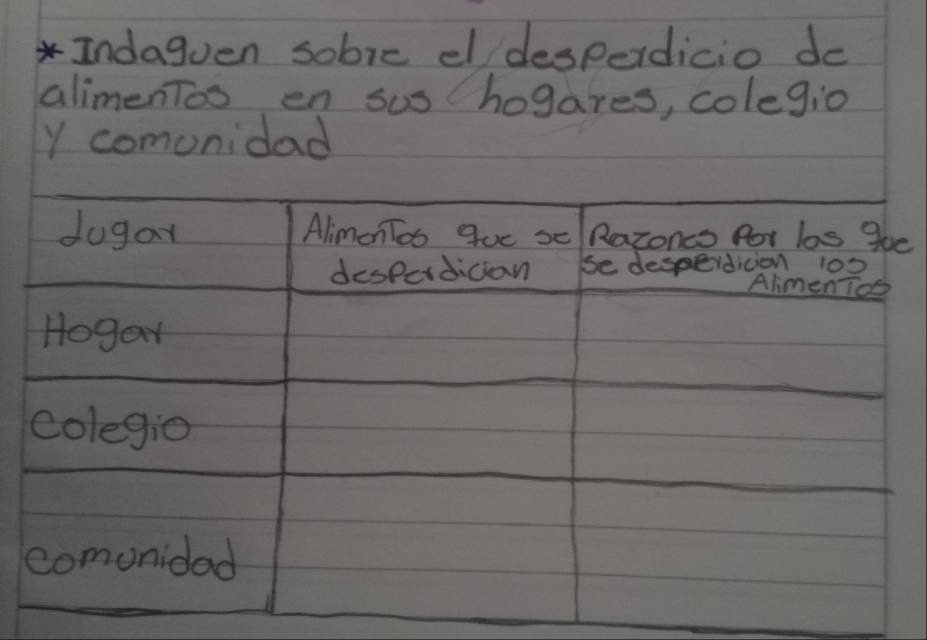 * Indaguen sobre el desperdicio de
alimentos en sus hogares, colegio
y comunidad
Lugar
Alimentos que se
desperdician
Razones por las que
se desperdician los
Alimentos
Hogar
colegio
comunidad